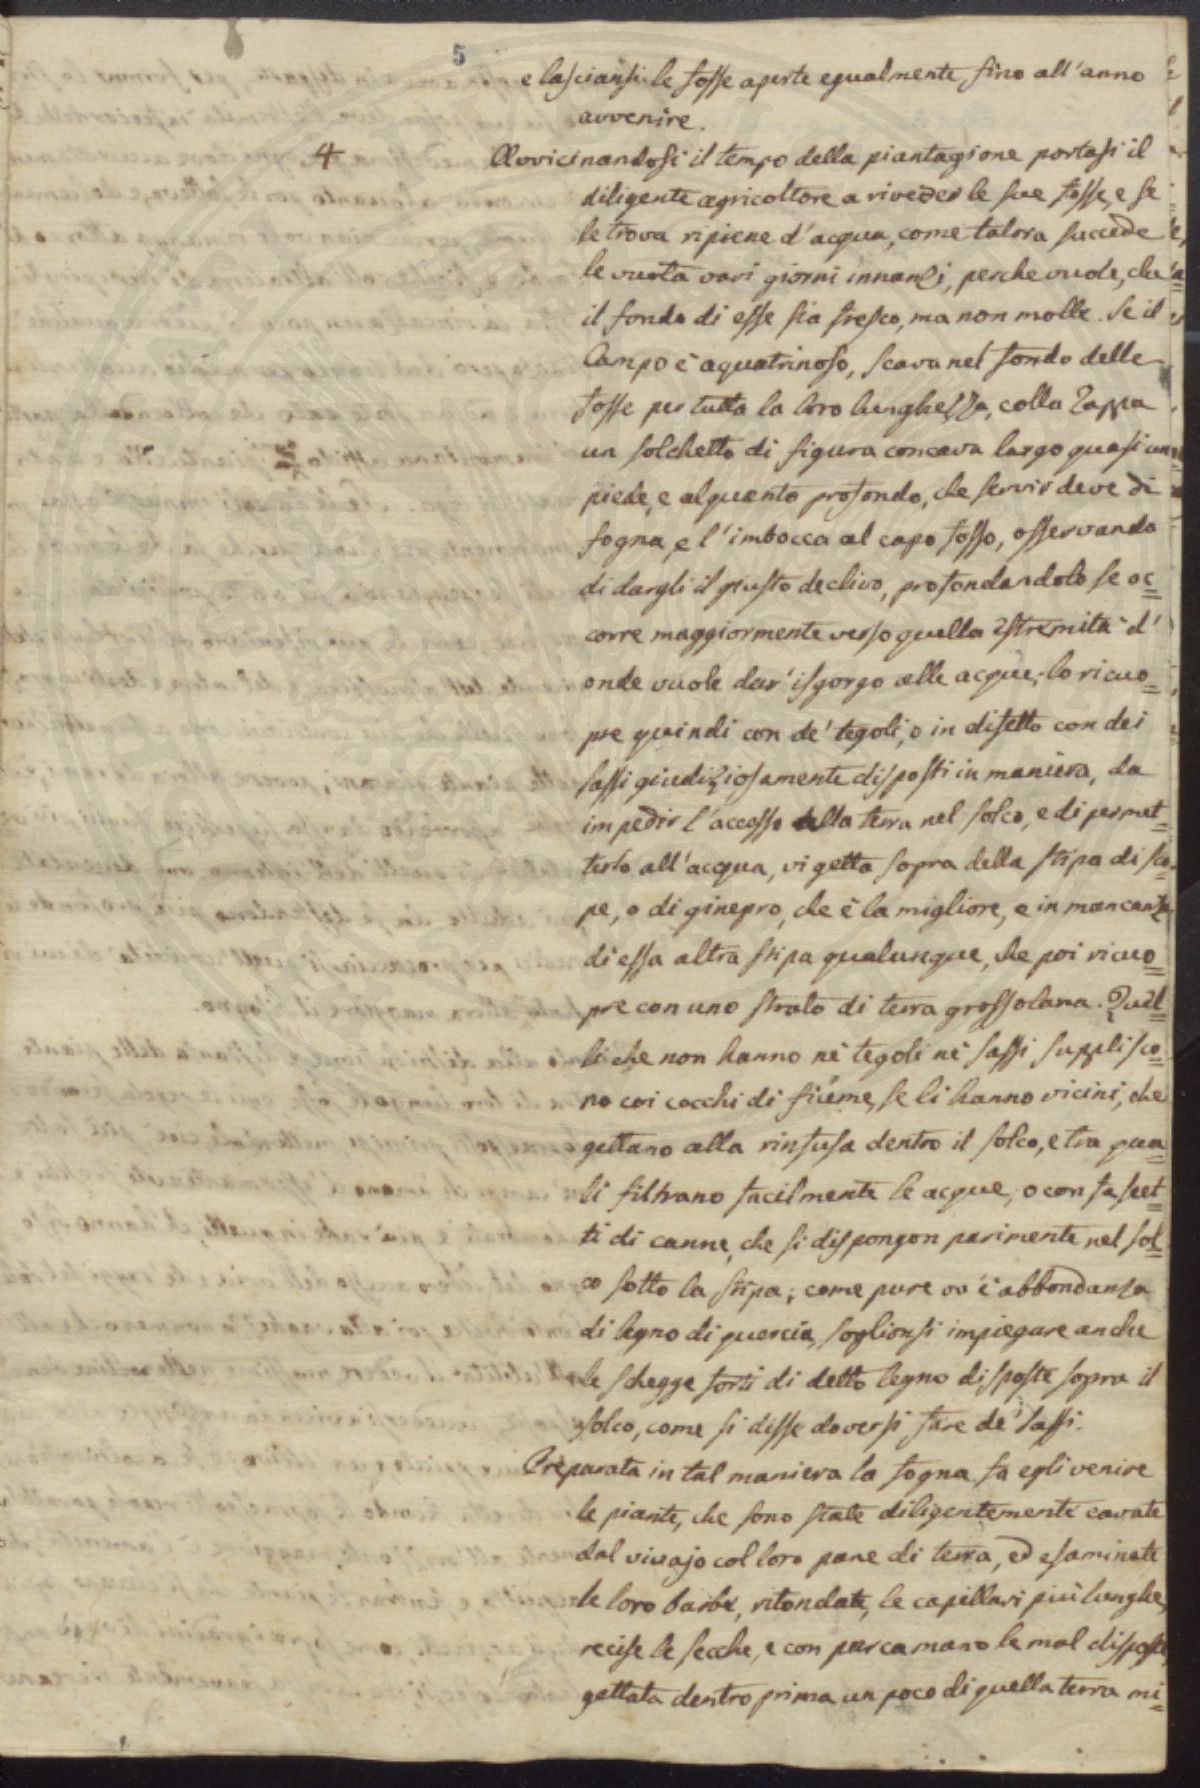 5
e lasciansi le fosse aperte egualmente, fino all'anno
avvenire.
4
Avvicinandosi il tempo della piantagione portasi il
diligente agricoltore a riveder le sue fosse, e se
le trova ripiene d'acqua, come talora succede
le vuota vari giorni innanzi, perche vuole, che
il fondo di esse sia fresco, ma non molle. Se il
Campo è aquatrinoso, scava nel fondo delle
fosse per tutta la loro lunghezza, colla Zappa
un solchetto di figura concava largo quasi un
piede, e alquanto profondo, che servir deve di
fogna, e l'imbocca al capo fosso, osservando
di dargli il giusto declivo, profondandolo se oc=
corre maggiormente verso quella estremità d'
onde vuole dar' isgorgo alle acque; lo ricuo=
pre quindi con de' tegoli, o in difetto con dei
sassi giudiziosamente disposti in maniera, da
impedir l'accesso della terra nel solco, e di permet=
terlo all'acqua, vi getta sopra della stipa di sco=
pe, o di ginepro, che è la migliore, e in mancanza
di essa altra stipa qualunque, che poi ricuo=
pre con uno strato di terra grossolana. Quel=
li che non hanno nè tegoli nè sassi supplisco=
no coi cocchi di fiume, se li hanno vicini, che
gettano alla rinfusa dentro il solco, e tra qua=
li filtrano facilmente le acque; o con fascet=
ti di canne, che si dispongon parimente nel sol=
co sotto la stipa; come pure ov'è abbondanza
di legno di quercia, soglionsi impiegare anche
le schegge forti di detto legno disposte sopra il
solco, come si disse doversi fare de' sassi.
Preparata in tal maniera la fogna, fa egli venire
le piante, che sono state diligentemente cavate
dal vivajo col loro pane di terra, ed esaminate
le loro barbe, ritondate, le capillari più lunghe,
recise le secche, e con parca mano le mal disposte,
gettata dentro prima un poco di quella terra mi=